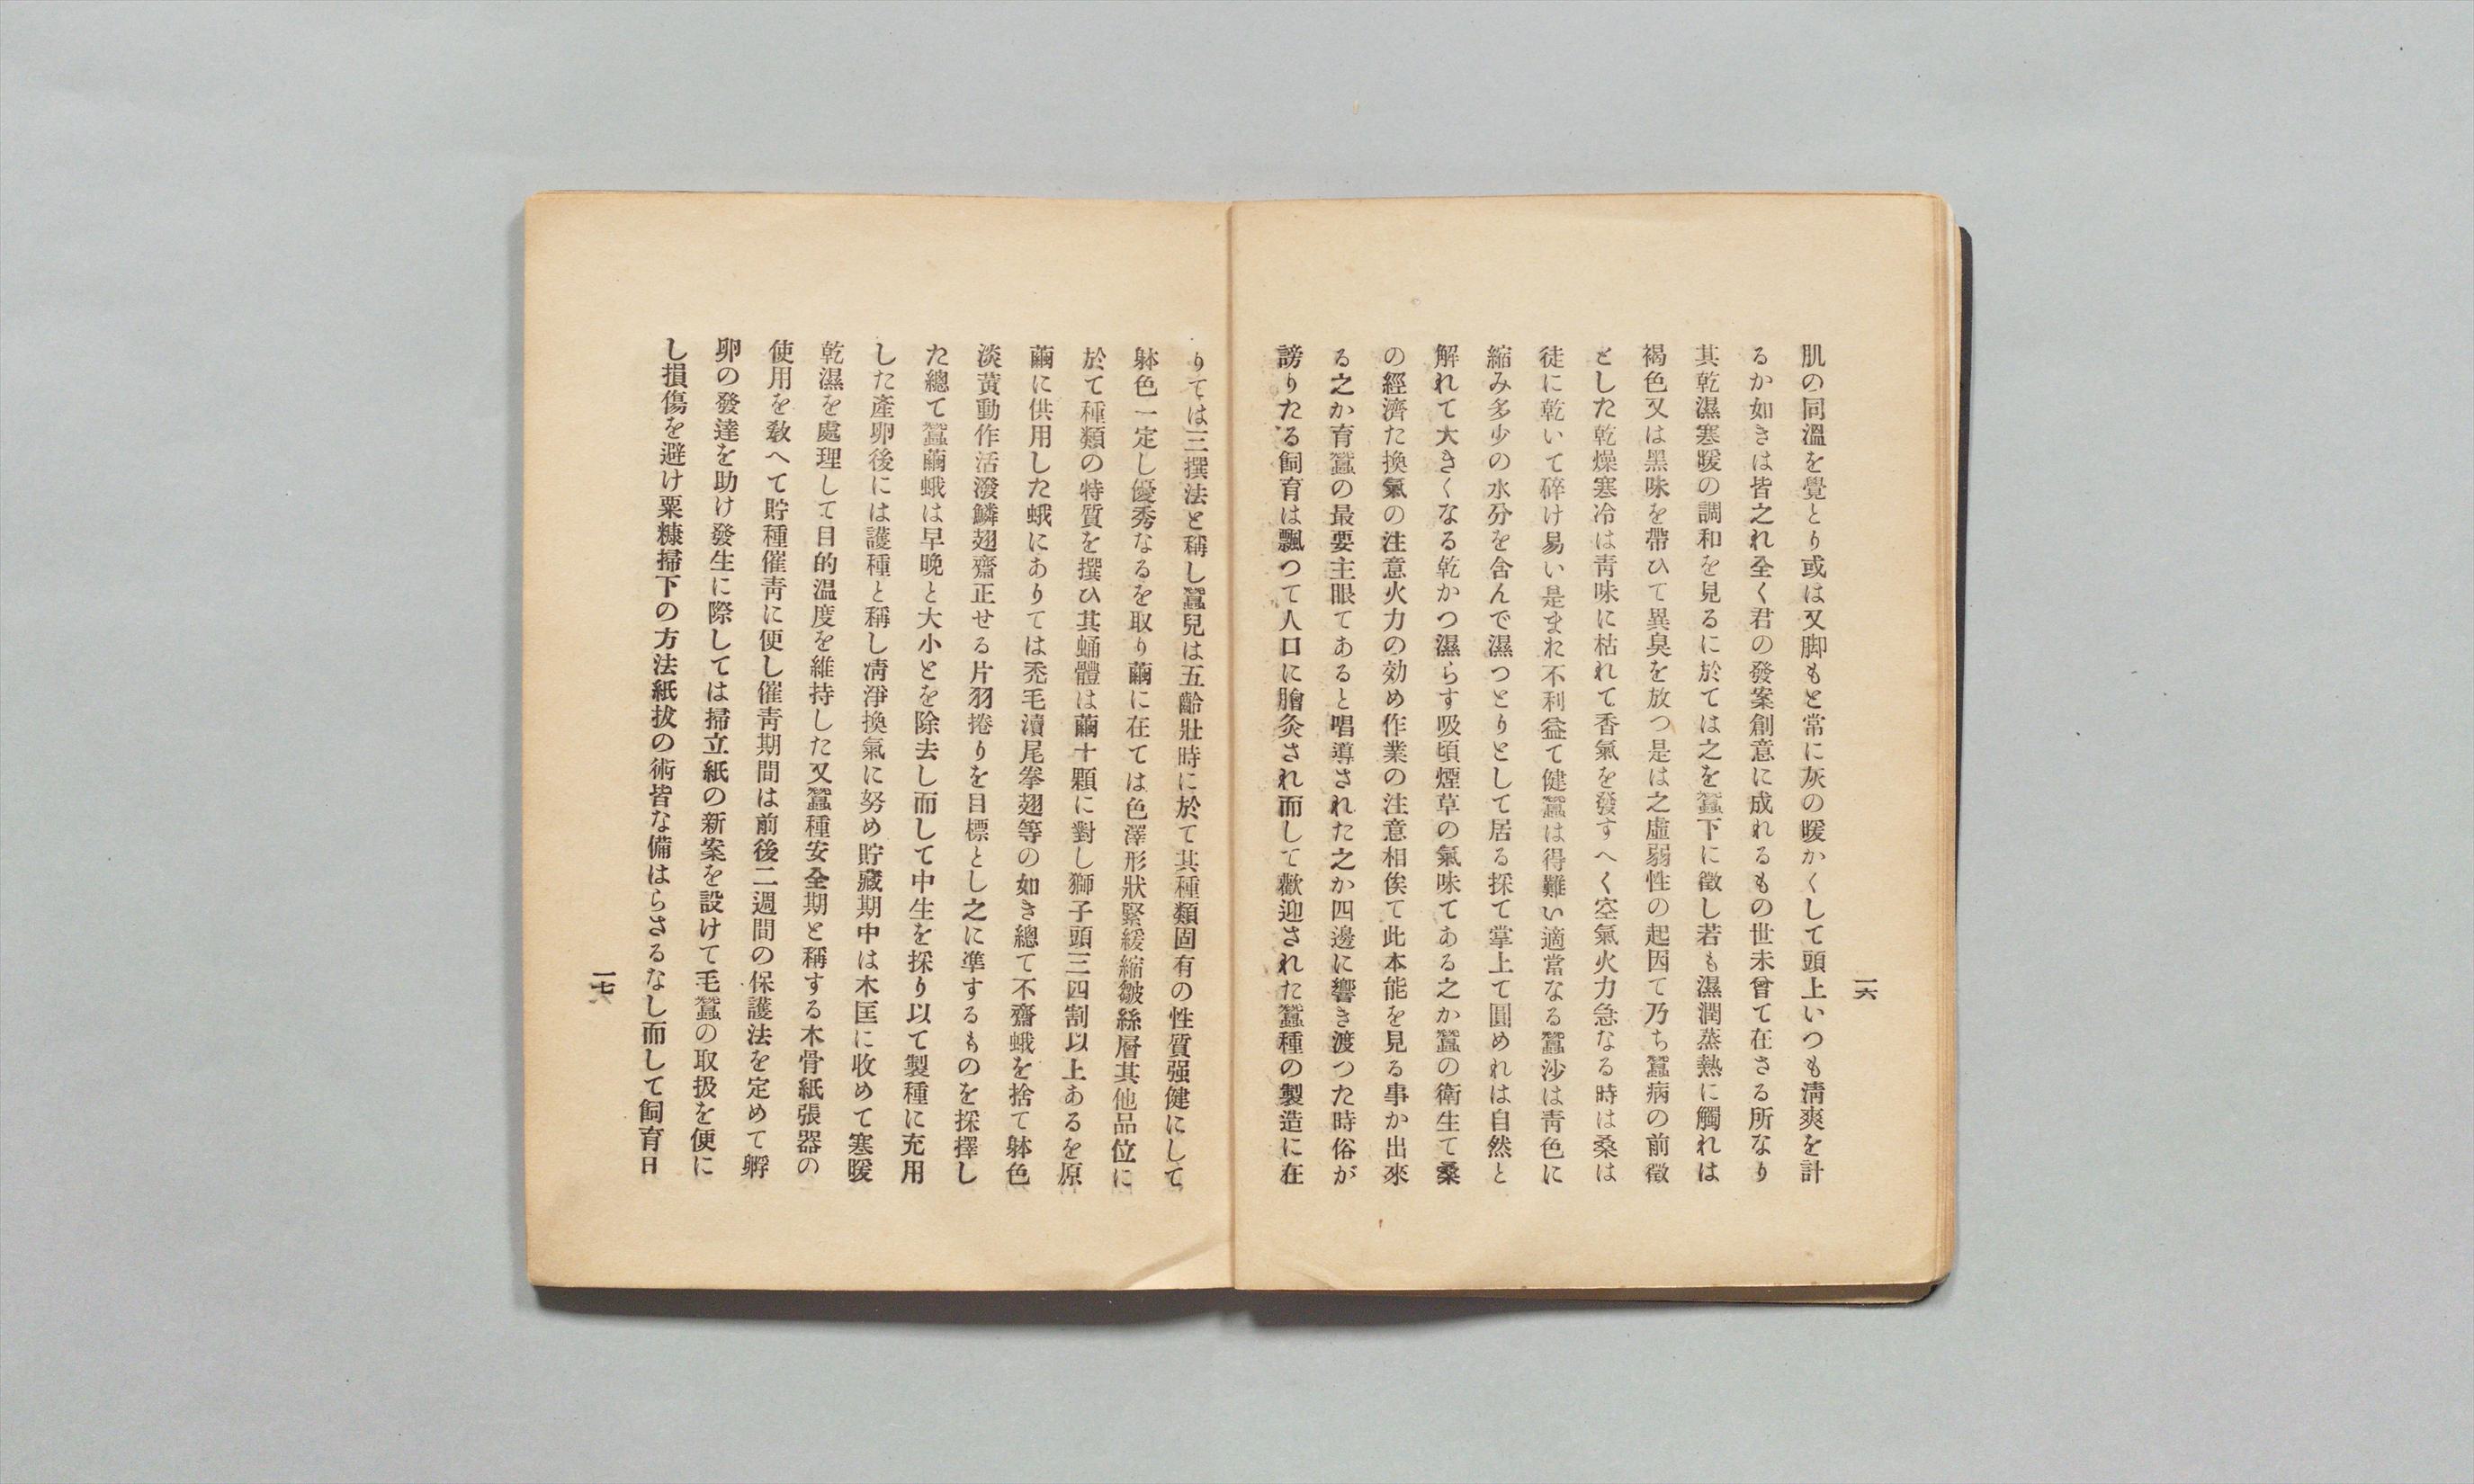 一六
肌の同溫を覺とり或は又脚もと常に灰の暖かくして頭上いつも淸爽を計
るか如きは皆之れ全く君の發案創意に成れるもの世未曾て在さる所なり
其乾濕寒暖の調和を見るに於ては之を蠶下に徵し若も濕潤蒸熱に觸れは
褐色又は黑味を帶ひて異臭を放つ是は之虛弱性の起因て乃ち蠶病の前徵
とした乾燥寒冷は靑味に枯れて香氣を發すへく空氣火力急なる時は桑は
徒に乾いて碎け易い是まれ不利益て健蠶は得難い適當なる蠶沙は靑色に
縮み多少の水分を含んで濕つとりとして居る採て掌上て圓めれは自然と
解れて大きくなる乾かつ濕らす吸頃煙草の氣味てある之か蠶の衛生て桑
の經濟た換氣の注意火力の効め作業の注意相俟て此本能を見る事か出來
る之か育蠶の最要主眼てあると唱導された之か四邊に響き渡つた時俗が
謗りたる飼育は飄つて人口に膾灸され而して歡迎された蠶種の製造に在
りては三撰法と稱し蠶兒は五齡壯時に於て其種類固有の性質强健にして
躰色一定し優秀なるを取り繭に在ては色澤形狀緊緩縮皺絲層其他品位に
於て種類の特質を撰ひ其蛹體は繭十顆に對し獅子頭三四割以上あるを原
繭に供用した蛾にありては禿毛瀆尾拳翅等の如き總て不齋蛾を捨て躰色
淡黃動作活潑鱗翅齋正せる片羽捲りを目標とし之に準するものを採擇し
た總て蠶繭蛾は早晩と大小とを除去し而して中生を採り以て製種に充用
した產卵後には護種と稱し淸淨換氣に努め貯藏期中は木匡に收めて寒暖
乾濕を處理して目的溫度を維持した又蠶種安全期と稱する木骨紙張器の
使用を敎へて貯種催靑に便し催靑期間は前後二週間の保護法を定めて孵
卵の發達を助け發生に際しては掃立紙の新案を設けて毛蠶の取扱を便に
し損傷を避け粟糠掃下の方法紙拔の術皆な備はらさるなし而して飼育日
一七